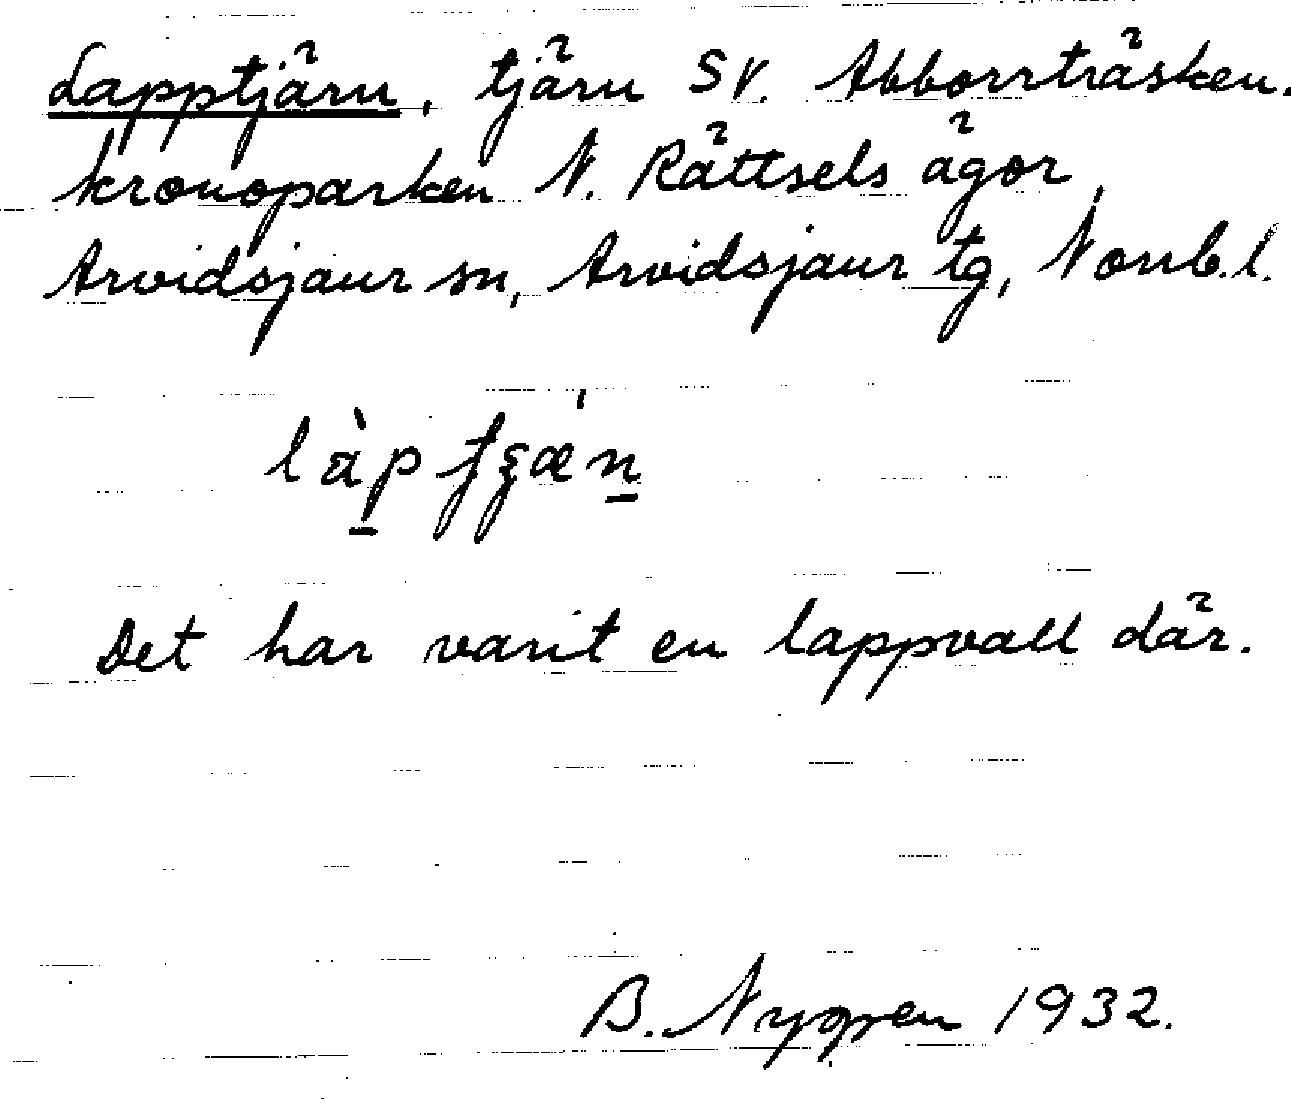 Lapptjärn, tjärn SV. Abborrträsken.
kronoparken N. Rättsels ägor,
Arvidsjaur sn, Arvidsjaur tg, Norrb.l.
Det har varit en lappvall där.
B. Nygren 1932.